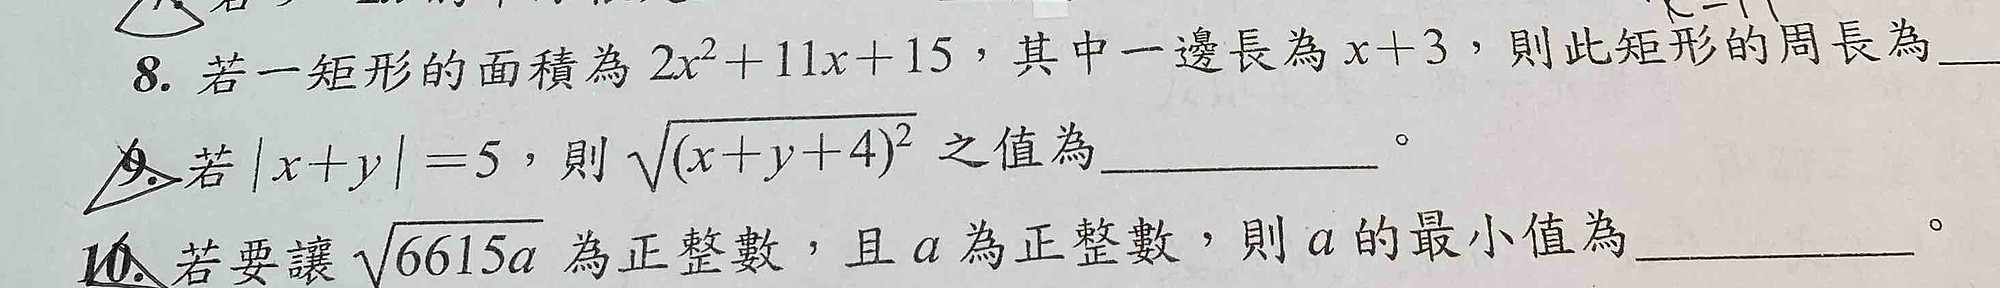 8. 若一矩形的面積為 2x²+11x+15，其中一邊長為 x+3，則此矩形的周長為
9. 若 |x+y|=5，則 √(x+y+4)² 之值為__________。
10. 若要讓 √6615a 為正整數，且 a 為正整數，則 a 的最小值為__________。